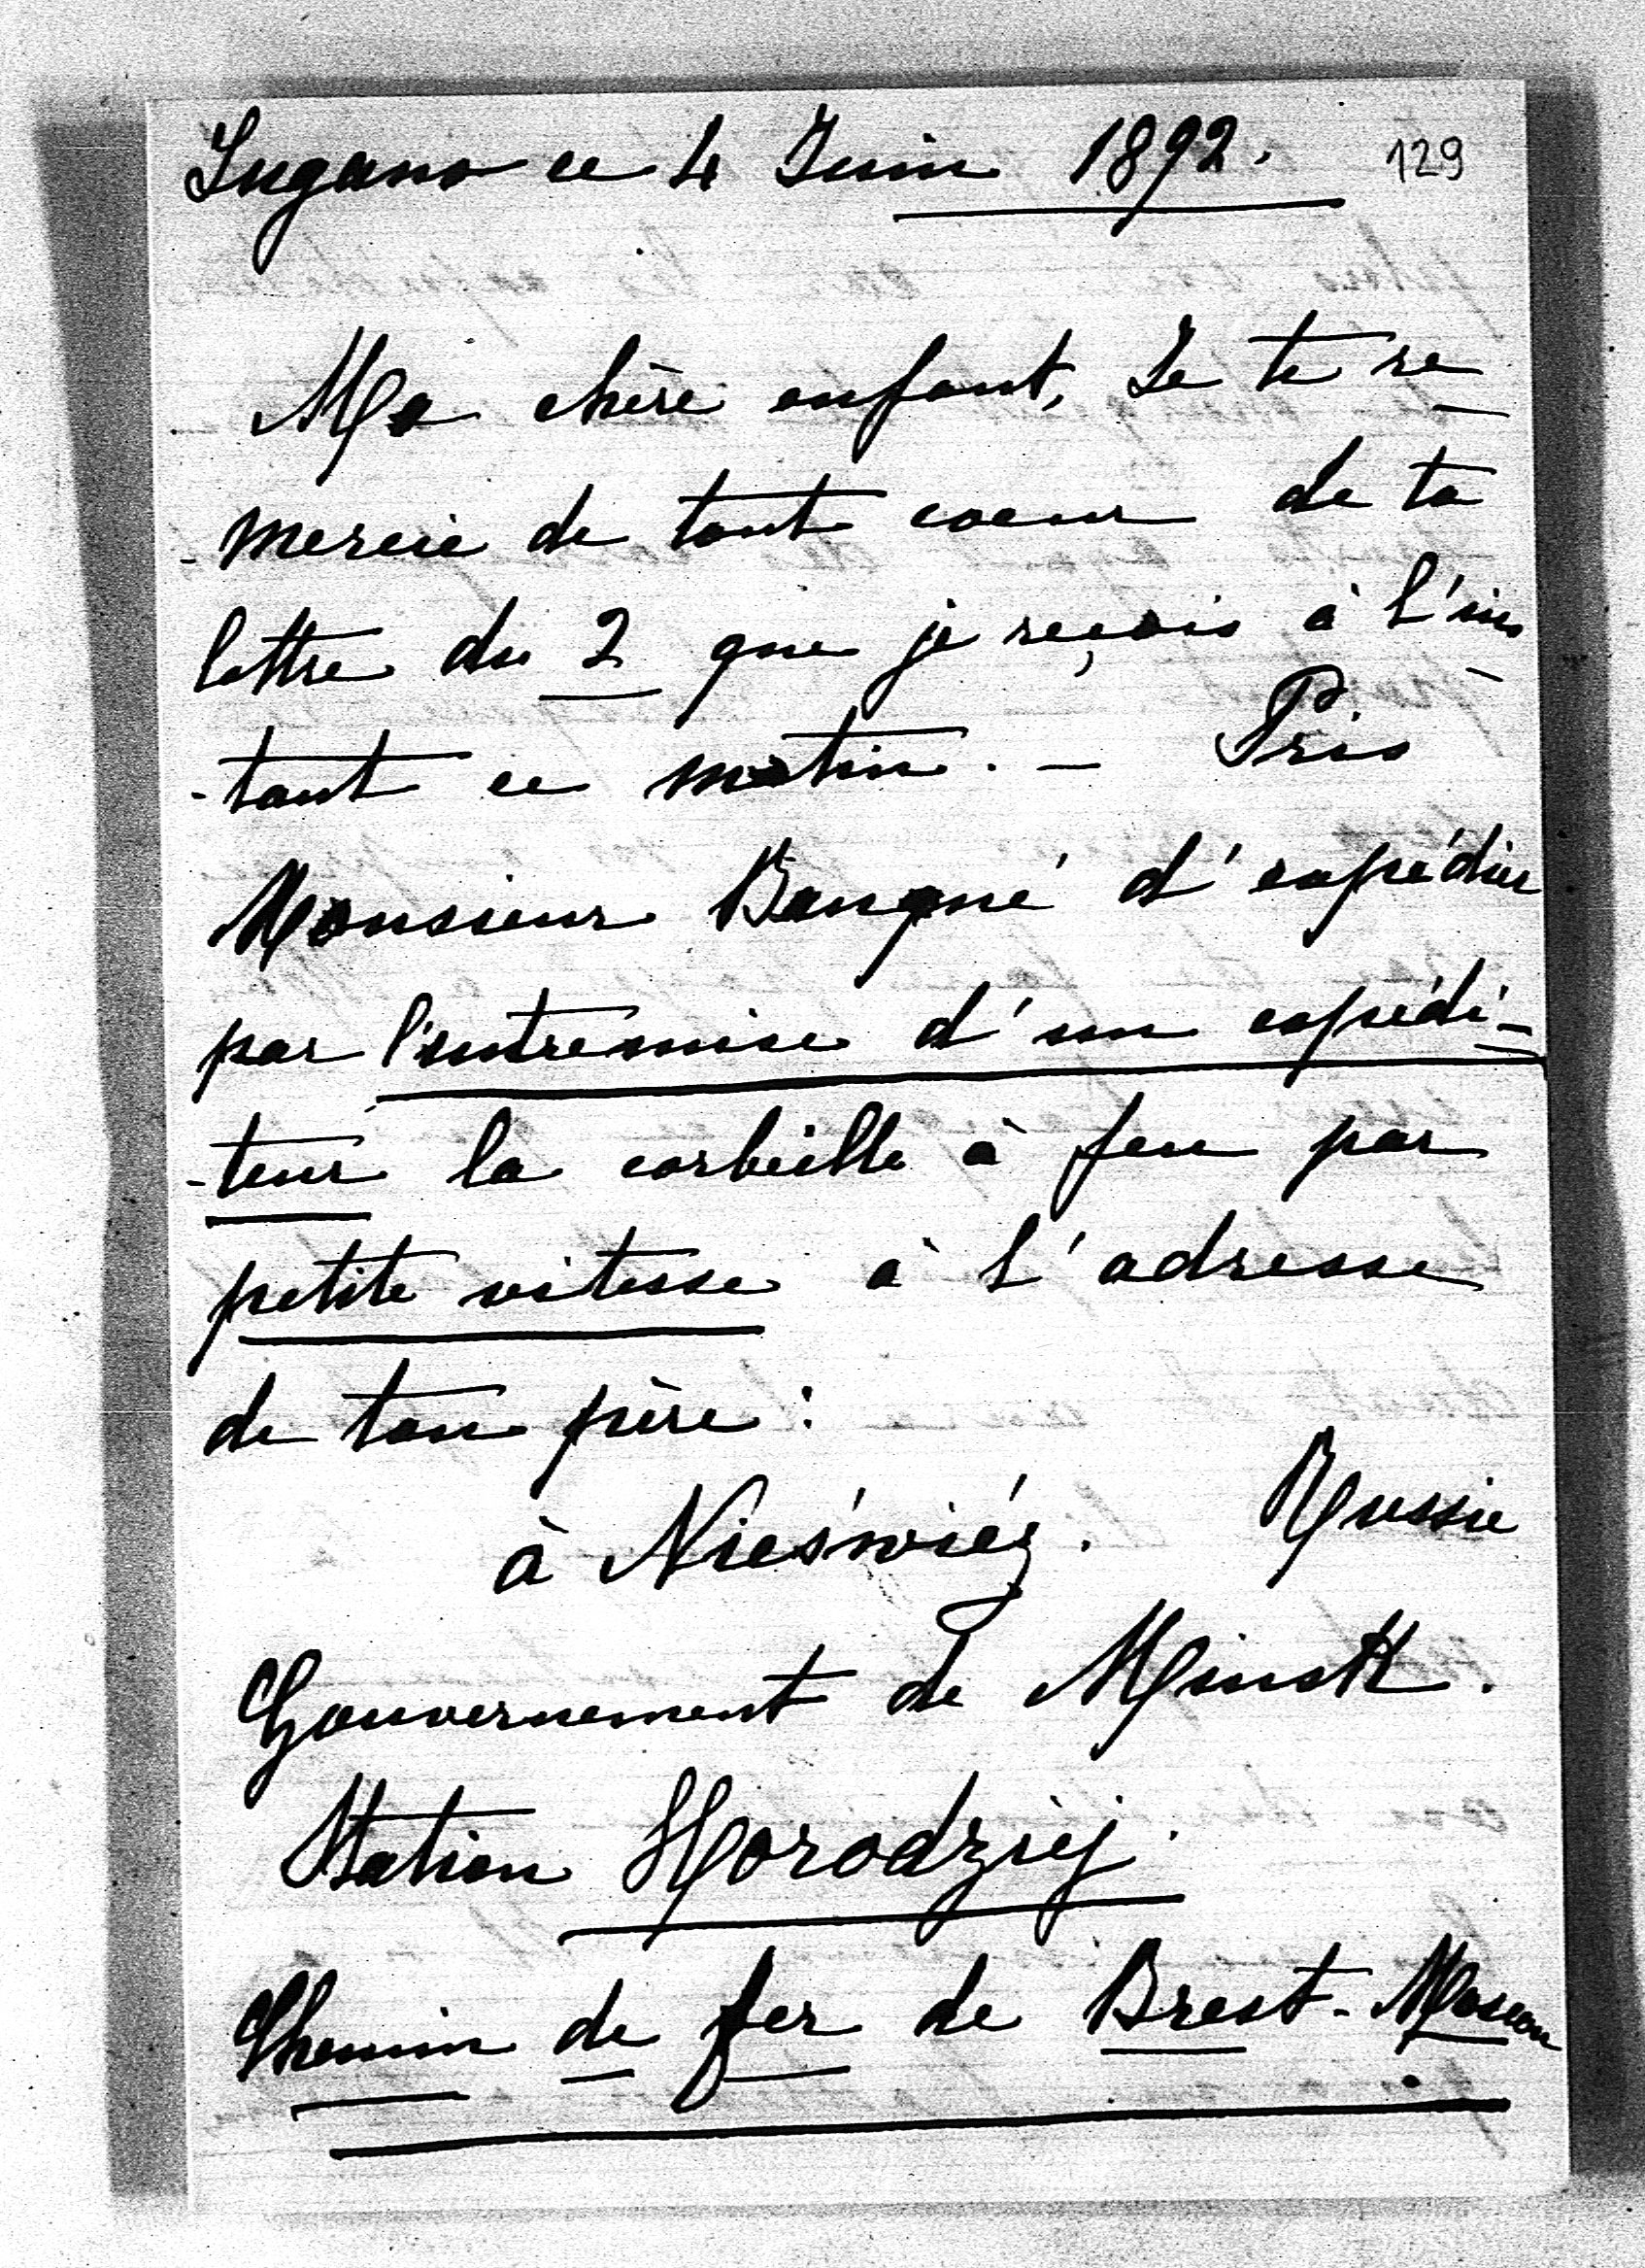 Lugano ce 4 Juin 1892. 129
Ma chère enfant, Je te re
-mercie de tout coeur de ta
lettre du 2 que je reçois à l'ins
-tant ce matin. — Prie
Monsieur Banqué d'expédier
par l'entremise d'un expédi-
-teur la corbeille à feu par
petite vitesse à l'adresse
de ton père :
à Nieświéz. Russie
Gouvernement de Minsk.
Station Horodziej.
Chemin de fer de Brest-Moscou